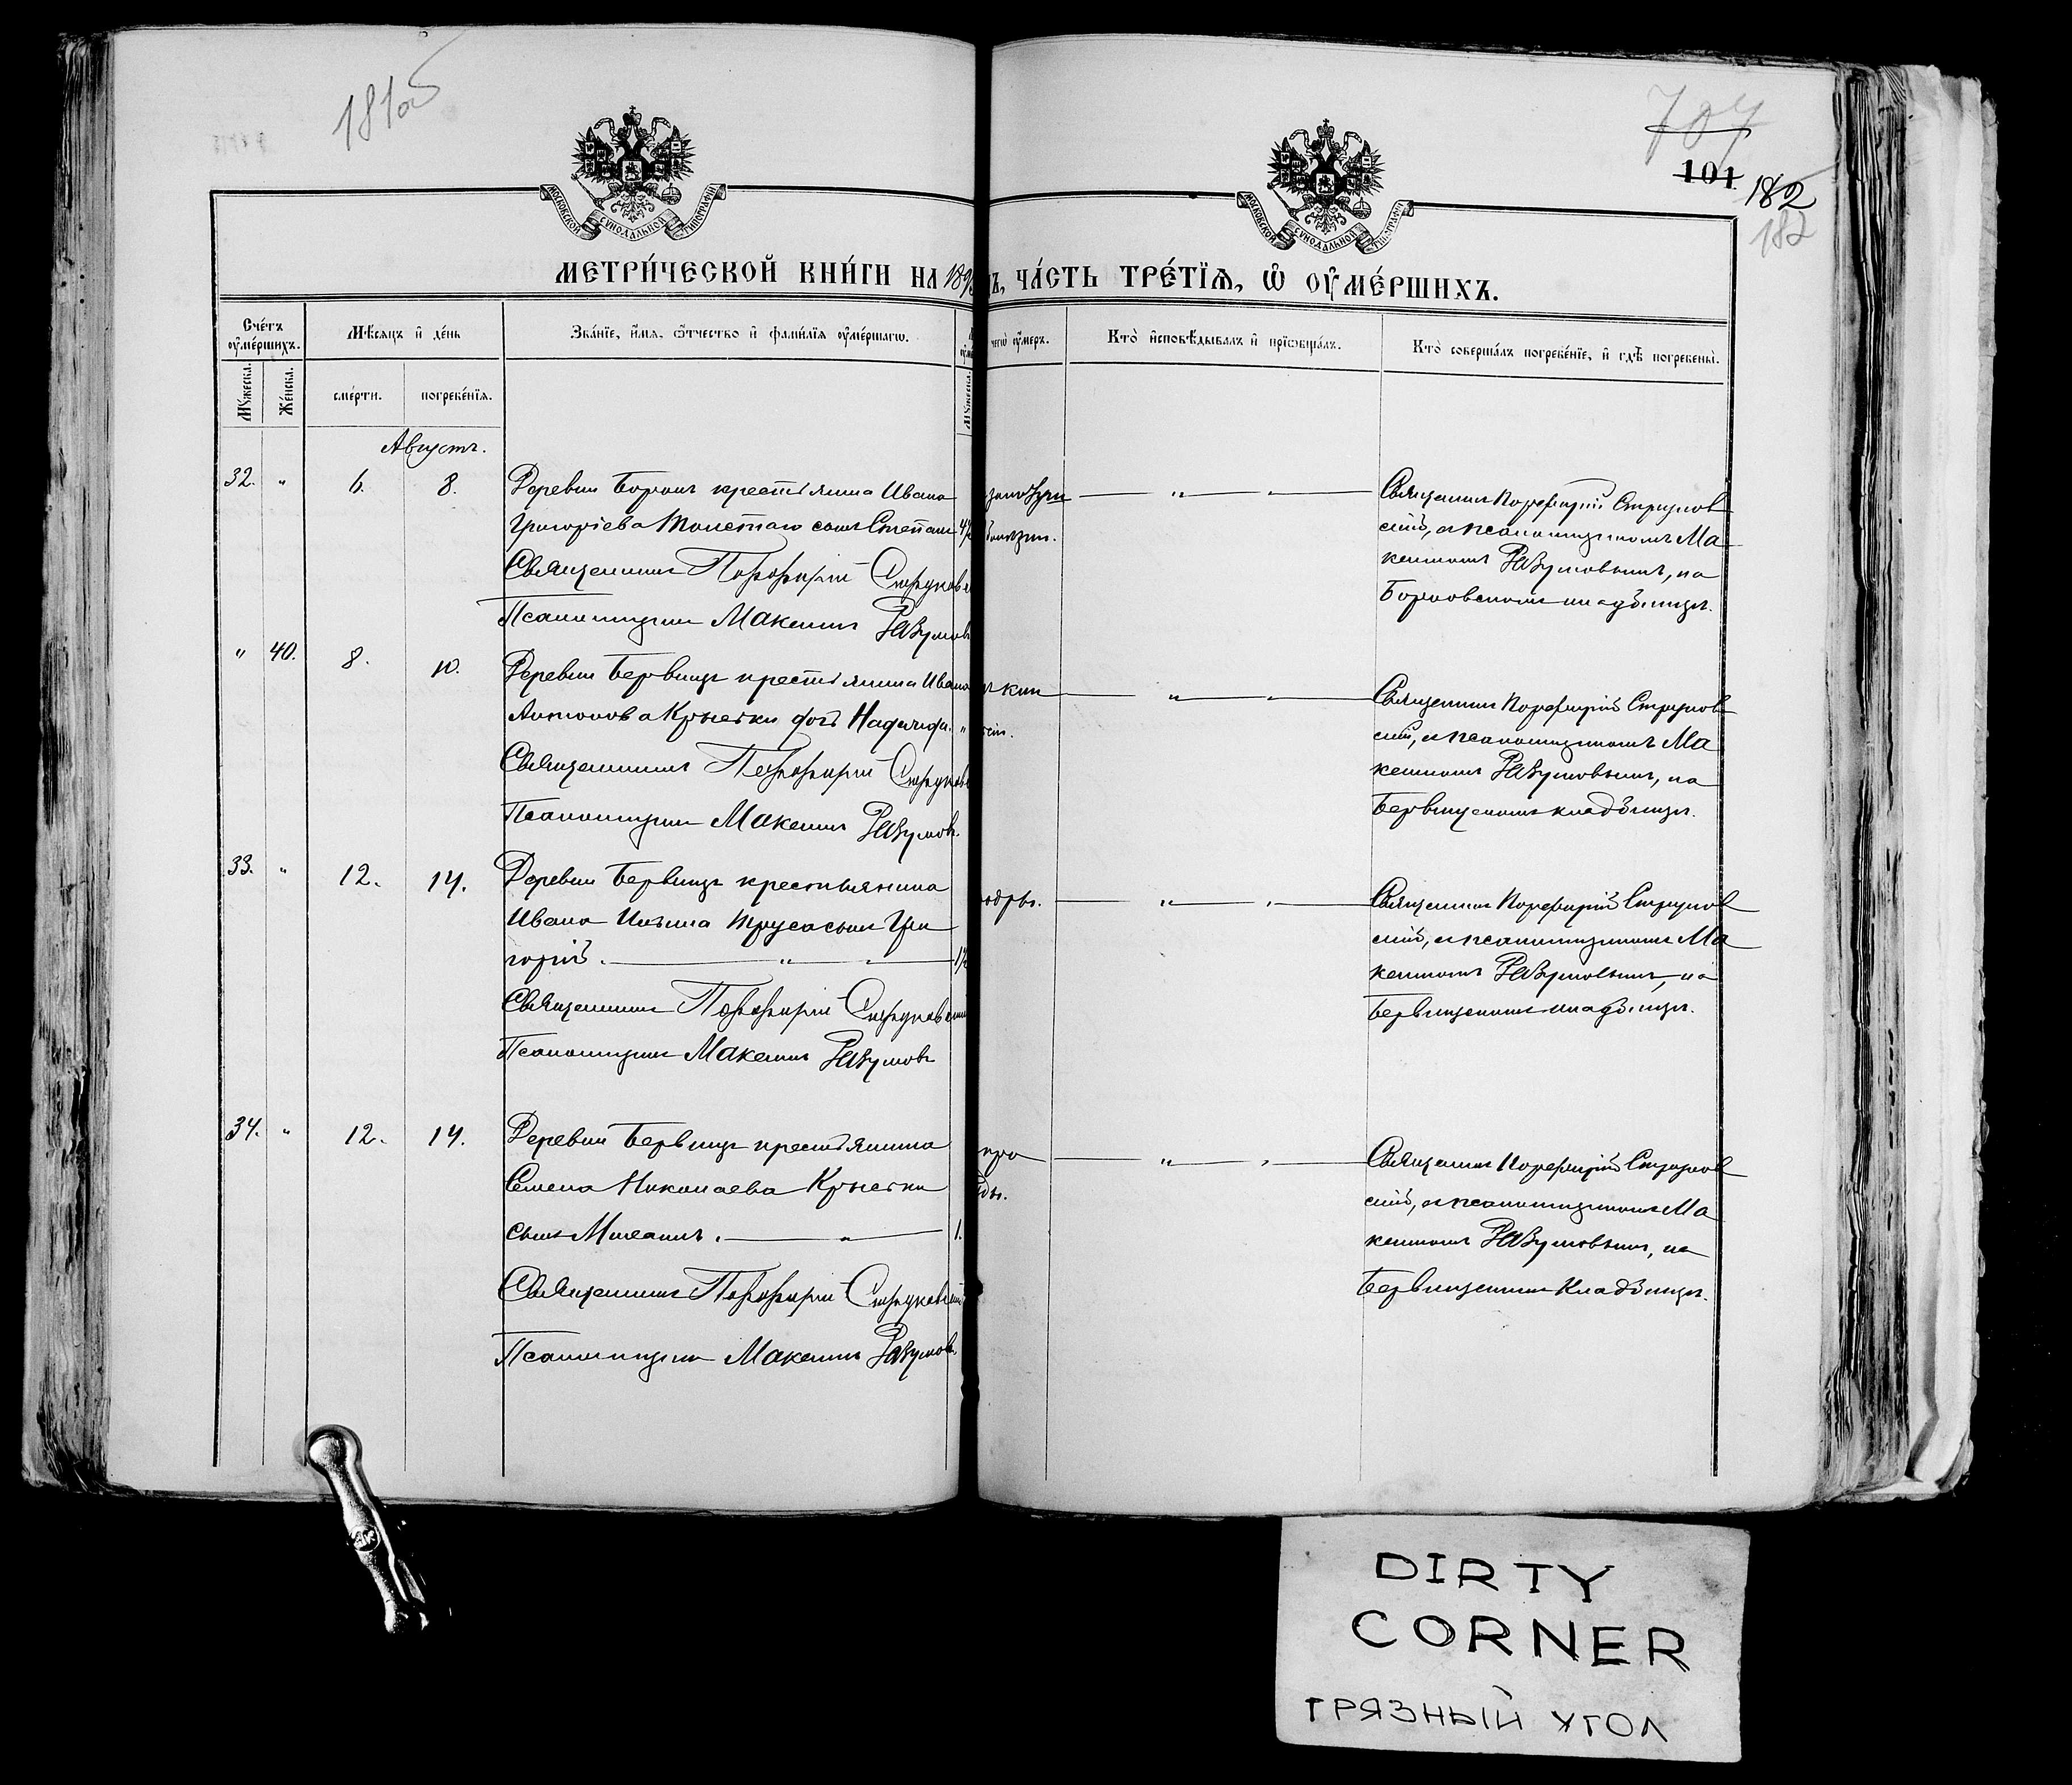 181об
707
101
182
182
МОСКОВСКОЙ СѴНОДАЛЬНОЙ ТИПОГРАФІИ
МОСКОВСКОЙ СѴНОДАЛЬНОЙ ТИПОГРАФІИ
МЕТРИ́ЧЕСКОЙ КНИ́ГИ НА 189
Ъ, ЧА́СТЬ ТРЕ́ТЇѦ, Ѽ ОУ҆МЕ́РШИХЪ.
Сче́тъ оу҆ме́ршихъ.
Мѣ́сѧцъ и҆ де́нь
Зва́нїе, и҆́мѧ, ѻ҆́тчество и҆ фами́лїѧ оу҆ме́ршагѡ.
чегѡ̀ оу҆́меръ.
Кто̀ и҆сповѣ́дывалъ и҆ прїѡбща́лъ.
Кто̀ соверша́лъ погребе́нїе, и҆ гдѣ̀ погребены̀.
Мꙋ́жеска.
Же́нска.
сме́рти.
погребе́нїѧ.
Мꙋ́жеска.
Августъ.
32. " 6. 8. Деревни крестьянина Ивана
Григоріева Толстаго сынъ Степанъ
Священникъ Порфирій Струковск
Псаломщикъ Максимъ Разумовъ
Священникъ Порфирій Струков
скій, съ псаломщикомъ Ма
ксимомъ Разумовымъ, на
Борковскомъ кладбищѣ.
" 40. 8. 10. Деревни Бервицъ крестьянина Ивана
Антонова Крыски дочь Надежда. "
Священникъ Порфирій Струковск
Псаломщикъ Максимъ Разумовъ.
Священникъ Порфирій Струков
скій, съ псаломщикомъ Ма
ксимомъ Разумовымъ, на
Бервицкомъ кладбищѣ.
33. " 12. 14. Деревни Бервицъ крестьянина
Ивана Ильина Труса сынъ Гри
горій. "
Священникъ Порфирій Струковскій
Псаломщикъ Максимъ Разумовъ
Священникъ Порфирій Струков
скій, съ псаломщикомъ Ма
ксимомъ Разумовымъ, на
Бервицкомъ кладбищѣ.
34. " 12. 14. Деревни Бервицъ крестьянина
Семена Николаева Крыски
сынъ Михаилъ. " 1.
Священникъ Порфирій Струковскій
Псаломщикъ Максимъ Разумовъ.
Священникъ Порфирій Струков
скій, съ псаломщикомъ Ма
ксимомъ Разумовымъ, на
Бервицкомъ кладбищѣ.
DIRTY
CORNER
ГРЯЗНЫЙ УГОЛ